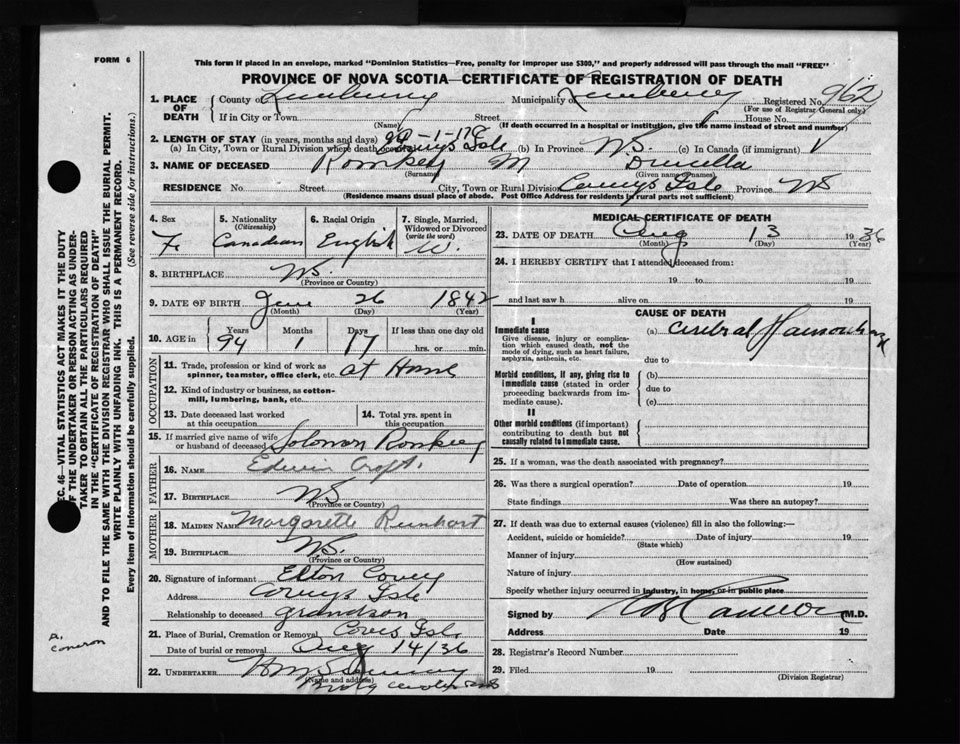 FORM 6
This form if placed in an envelope, marked "Dominion Statistics—Free, penalty for improper use $300," and properly addressed will pass through the mail "FREE"
PROVINCE OF NOVA SCOTIA—CERTIFICATE OF REGISTRATION OF DEATH
1. PLACE OF DEATH County of Lunenburg Municipality of Lunenburg Registered No. 962
(For use of Registrar General only)
If in City or Town Street House No.
(Name) (If death occurred in a hospital or institution, give the name instead of street and number)
2. LENGTH OF STAY (in years, months and days)
(a) In City, Town or Rural Division where death occurred Coveys Isle (b) In Province NS. (c) In Canada (if immigrant)
3. NAME OF DECEASED Romkey M Drucella
(Surname) (Given name or names)
RESIDENCE No. Street City, Town or Rural Division Coveys Isle Province NS
(Residence means usual place of abode. Post Office Address for residents in rural parts not sufficient)
4. Sex Fe
5. Nationality (Citizenship) Canadian
6. Racial Origin English
7. Single, Married, Widowed or Divorced (write the word) W.
8. BIRTHPLACE NS.
(Province or Country)
9. DATE OF BIRTH June 26 1842
(Month) (Day) (Year)
10. AGE Years 94 Months 1 Days 17 If less than one day old hrs. or min.
OCCUPATION
11. Trade, profession or kind of work as spinner, teamster, office clerk, etc. at Home
12. Kind of industry or business, as cotton-mill, lumbering, bank, etc.
13. Date deceased last worked at this occupation
14. Total yrs. spent in this occupation
15. If married give name of wife or husband of deceased Solomon Romkey
FATHER
16. NAME Edwin Croft.
17. BIRTHPLACE NS
(Province or Country)
MOTHER
18. MAIDEN NAME Margarette Reinhart
19. BIRTHPLACE NS.
(Province or Country)
20. Signature of informant Elton Covey
Address Coveys Isle
Relationship to deceased grandson
21. Place of Burial, Cremation or Removal Coveys Isle
Date of burial or removal Aug 14/36
22. UNDERTAKER
(Name and address)
MEDICAL CERTIFICATE OF DEATH
23. DATE OF DEATH Aug 13 1936
(Month) (Day) (Year)
24. I HEREBY CERTIFY that I attended deceased from:
19 to 19
and last saw h alive on 19
CAUSE OF DEATH
I
Immediate cause (a) Cerebral Haemorrhage
Give disease, injury or complication which caused death, not the mode of dying, such as heart failure, asphyxia, asthenia, etc.
due to
Morbid conditions, if any, giving rise to immediate cause (stated in order proceeding backwards from immediate cause).
(b)
due to
(c)
II
Other morbid conditions (if important) contributing to death but not causally related to immediate cause.
25. If a woman, was the death associated with pregnancy?
26. Was there a surgical operation? Date of operation 19
State findings Was there an autopsy?
27. If death was due to external causes (violence) fill in also the following:—
Accident, suicide or homicide? Date of injury 19
(State which)
Manner of injury
(How sustained)
Nature of injury
Specify whether injury occurred in industry, in home, or in public place
Signed by M.D.
Address Date 19
28. Registrar's Record Number
29. Filed 19
(Division Registrar)
SEC. 46—VITAL STATISTICS ACT MAKES IT THE DUTY
OF THE UNDERTAKER OR PERSON ACTING AS UNDERTAKER
TO OBTAIN ALL THE PARTICULARS REQUIRED
IN THE "CERTIFICATE OF REGISTRATION OF DEATH"
AND TO FILE THE SAME WITH THE DIVISION REGISTRAR WHO SHALL ISSUE THE BURIAL PERMIT.
WRITE PLAINLY WITH UNFADING INK. THIS IS A PERMANENT RECORD.
Every item of Information should be carefully supplied. (See reverse side for instructions.)